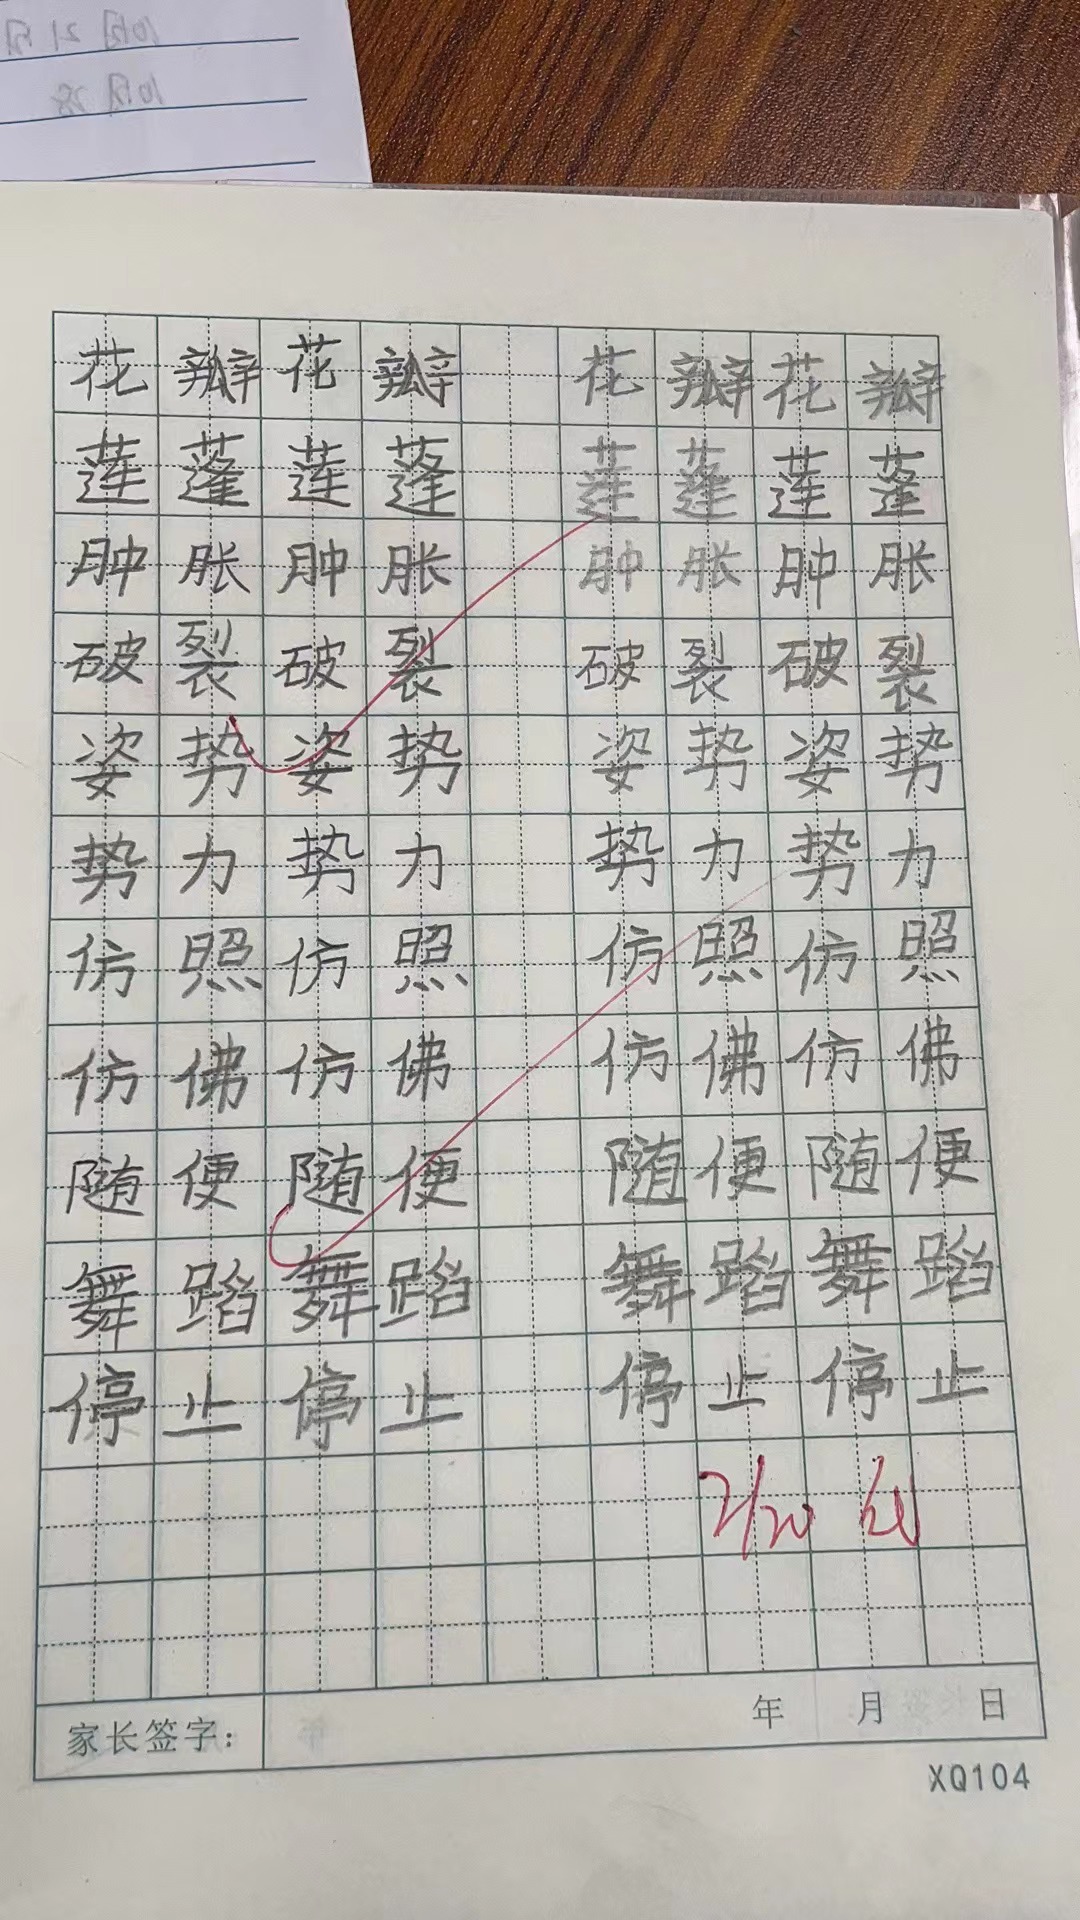 10月21日
10月28
花瓣花瓣 花瓣花瓣
莲蓬莲蓬 莲蓬莲蓬
肿胀肿胀 肿胀肿胀
破裂破裂 破裂破裂
姿势姿势 姿势姿势
势力势力 势力势力
仿照仿照 仿照仿照
仿佛仿佛 仿佛仿佛
随便随便 随便随便
舞蹈舞蹈 舞蹈舞蹈
停止停止 停止停止
2/20
家长签字： 年 月 日
XQ104